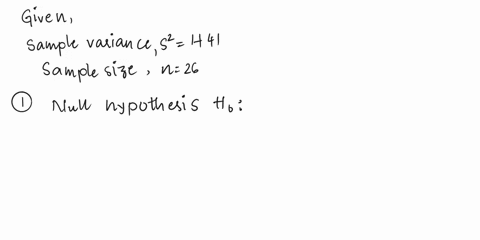 Given,
Sample variance, s² = 1441
Sample size, n = 26
① Null hypothesis H₀: